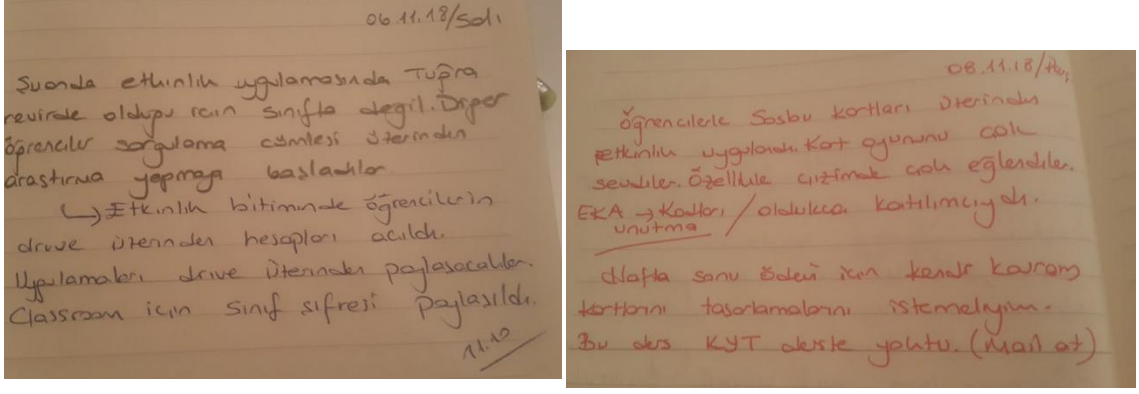 06.11.18/Salı
Şuanda etkinlik uygulamasında Tuğra
revirde olduğu için sınıfta değil. Diğer
öğrenciler sorgulama cümlesi üzerinden
araştırma yapmaya başladılar.
↳ Etkinlik bitiminde öğrencilerin
drive üzerinden hesapları açıldı.
Uygulamaları drive üzerinden paylaşacaklar.
Classroom için sınıf şifresi paylaşıldı.
11.10
08.11.18/Perş
Öğrencilerle Sosbu kartları üzerinden
etkinlik uygulandı. Kart oyununu çok
sevdiler. Özellikle çizimde çok eğlendiler.
EKA → Kartları / oldukça katılımcıydı.
unutma
Hafta sonu ödevi için kendi kavram
kartlarını tasarlamalarını istemeliyim.
Bu ders KYT derste yoktu. (Mail at)